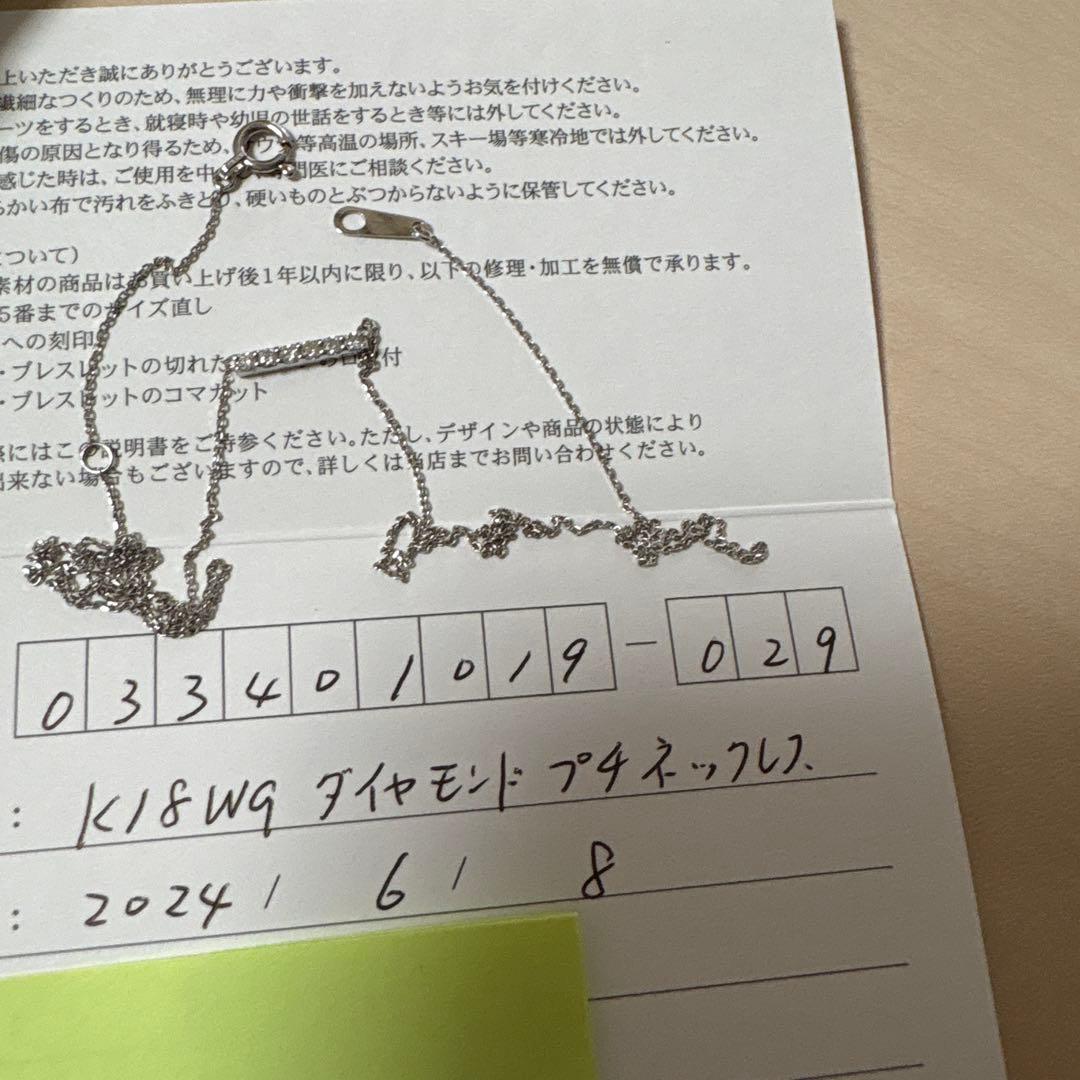 上いただき誠にありがとうございます。
繊細なつくりのため、無理に力や衝撃を加えないようお気を付けください。
ーツをするとき、就寝時や幼児の世話をするとき等には外してください。
傷の原因となり得るため、 等高温の場所、スキー場等寒冷地では外してください。
感じた時は、ご使用を中 門医にご相談ください。
らかい布で汚れをふきとり、硬いものとぶつからないように保管してください。
について）
素材の商品はお買い上げ後1年以内に限り、以下の修理・加工を無償で承ります。
5番までのサイズ直し
への刻印
・ブレスレットの切れた 付
・ブレスレットのコマカット
際にはこの説明書をご持参ください。ただし、デザインや商品の状態により
出来ない場合もございますので、詳しくは当店までお問い合わせください。
033401019-029
: K18WG ダイヤモンド プチネックレス
: 2024/ 6/ 8